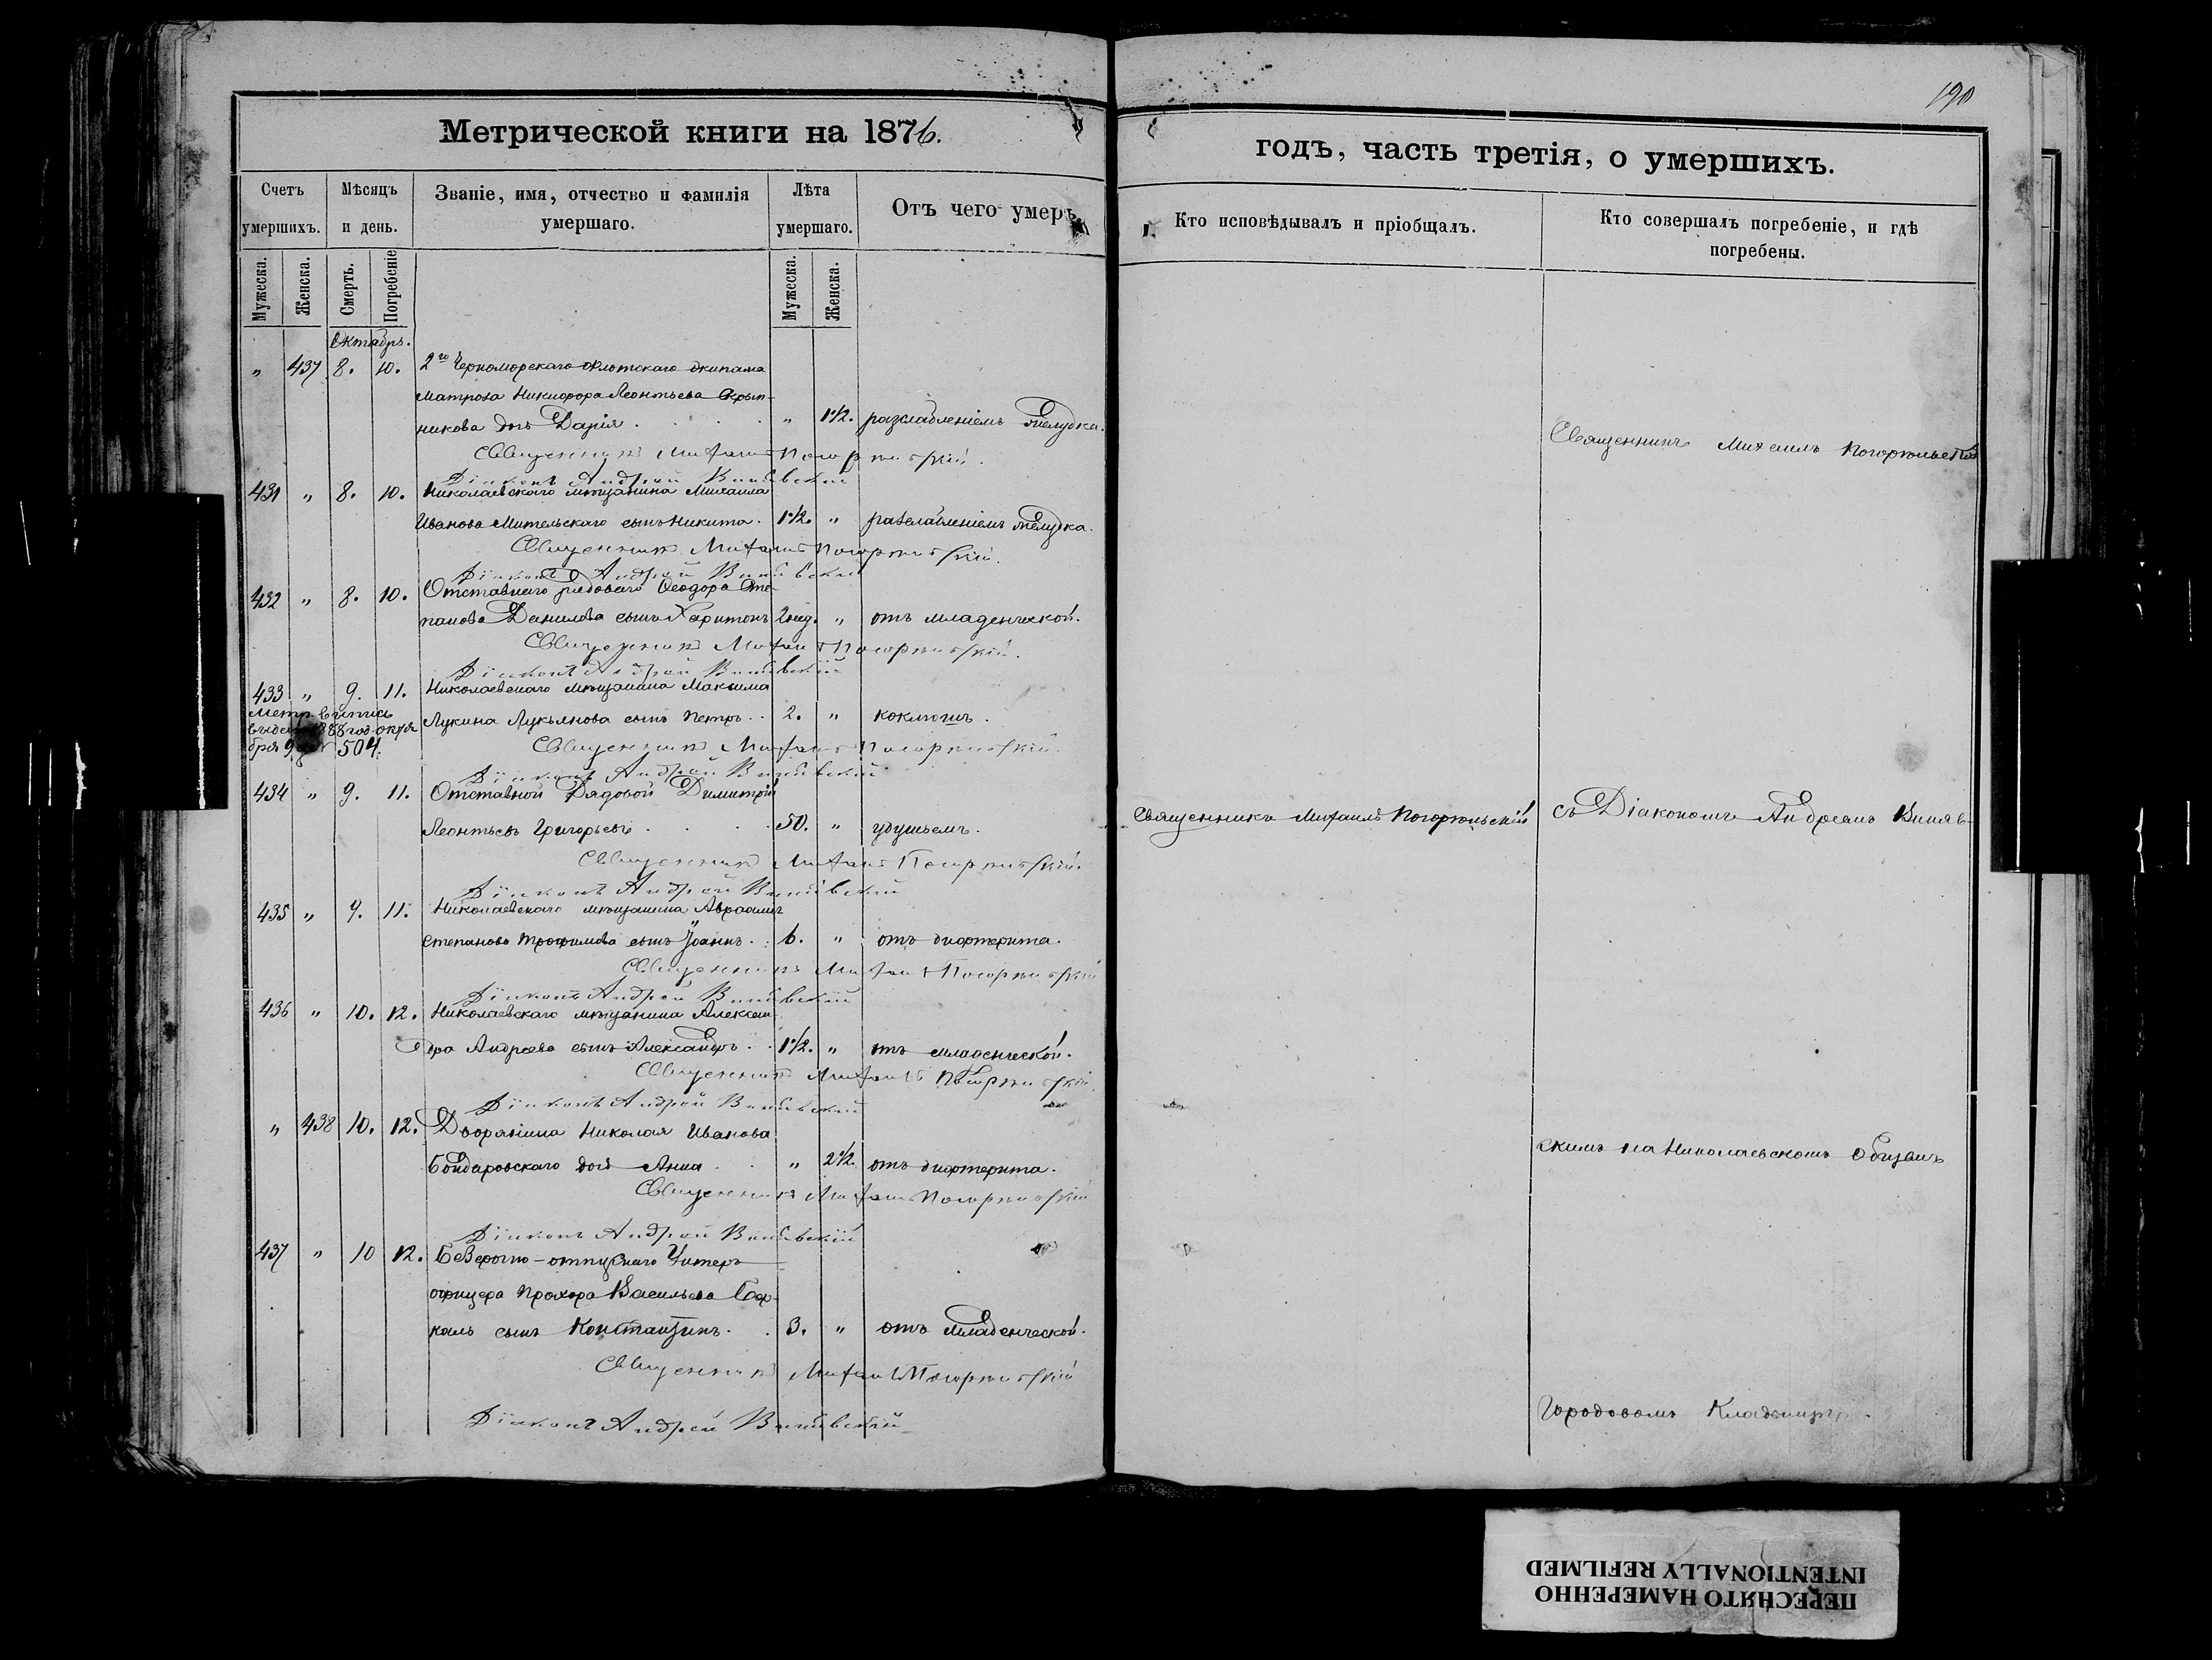 190
Метрической книги на 1876.
годъ, часть третія, о умершихъ.
Счетъ умершихъ.
Мѣсяцъ и день.
Званіе, имя, отчество и фамилія умершаго.
Лѣта умершаго.
Отъ чего умеръ
Кто исповѣдывалъ и пріобщалъ.
Кто совершалъ погребеніе, и гдѣ погребены.
Мужеска. Женска. Смерть. Погребеніе Мужеска. Женска.
Октябрь.
" 437 8. 10. 2го Черноморскаго флотскаго экипажа
матроса Никифора Леонтьева Скрып-
никова дочь Дарія . . . . " 1 1/2. разслабленіемъ желудка.
Священникъ Михаилъ Погорѣльскій.
Діаконъ Андрей
431 " 8. 10. Николаевскаго мѣщанина Михаила
Иванова Мительскаго сынъ Никита. 1 1/2. " разслабленіемъ желудка.
Священникъ Михаилъ Погорѣльскій.
Діаконъ Андрей
432 " 8. 10. Отставнаго рядоваго Ѳеодора Сте-
панова Данилова сынъ Харитонъ 2 нед. " отъ младенческой.
Священникъ Михаилъ Погорѣльскій.
Діаконъ Андрей
433 " 9. 11. Николаевскаго мѣщанина Максима
Лукина Лукьянова сынъ Петръ . . 2. " коклюшъ.
Метр. выпись
504.
Священникъ Михаилъ Погорѣльскій.
Діаконъ Андрей
434 " 9. 11. Отставной Рядовой Димитрій
Леонтьевъ Григорьевъ . . . . 50. " удушьемъ.
Священникъ Михаилъ Погорѣльскій.
Діаконъ Андрей
435 " 9. 11. Николаевскаго мѣщанина Авраама
Степанова Трофимова сынъ Іоаннъ . . 6. " отъ дифтерита.
Священникъ Михаилъ Погорѣльскій
Діаконъ Андрей
436 " 10. 12. Николаевскаго мѣщанина Алексан-
дра Андреева сынъ Александръ . . 1 1/2. " отъ младенческой.
Священникъ Михаилъ Погорѣльскій.
Діаконъ Андрей
" 438 10. 12. Дворянина Николая Иванова
Бондаровскаго дочь Анна . . " 2 1/2. отъ дифтерита.
Священникъ Михаилъ Погорѣльскій
Діаконъ Андрей
437 " 10 12. Безсрочно-отпускнаго Унтеръ
офицера Прохора Васильева
сынъ Константинъ . . 3. " отъ младенческой.
Священникъ Михаилъ Погорѣльскій
Діаконъ Андрей
Священникъ Михаилъ Погорѣльскій
Священникъ Михаилъ Погорѣльскій
съ Діакономъ Андреемъ
скимъ на Николаевскомъ общемъ
Городовомъ Кладбищѣ.
ПЕРЕСНЯТО НАМЕРЕННО
INTENTIONALLY REFILMED